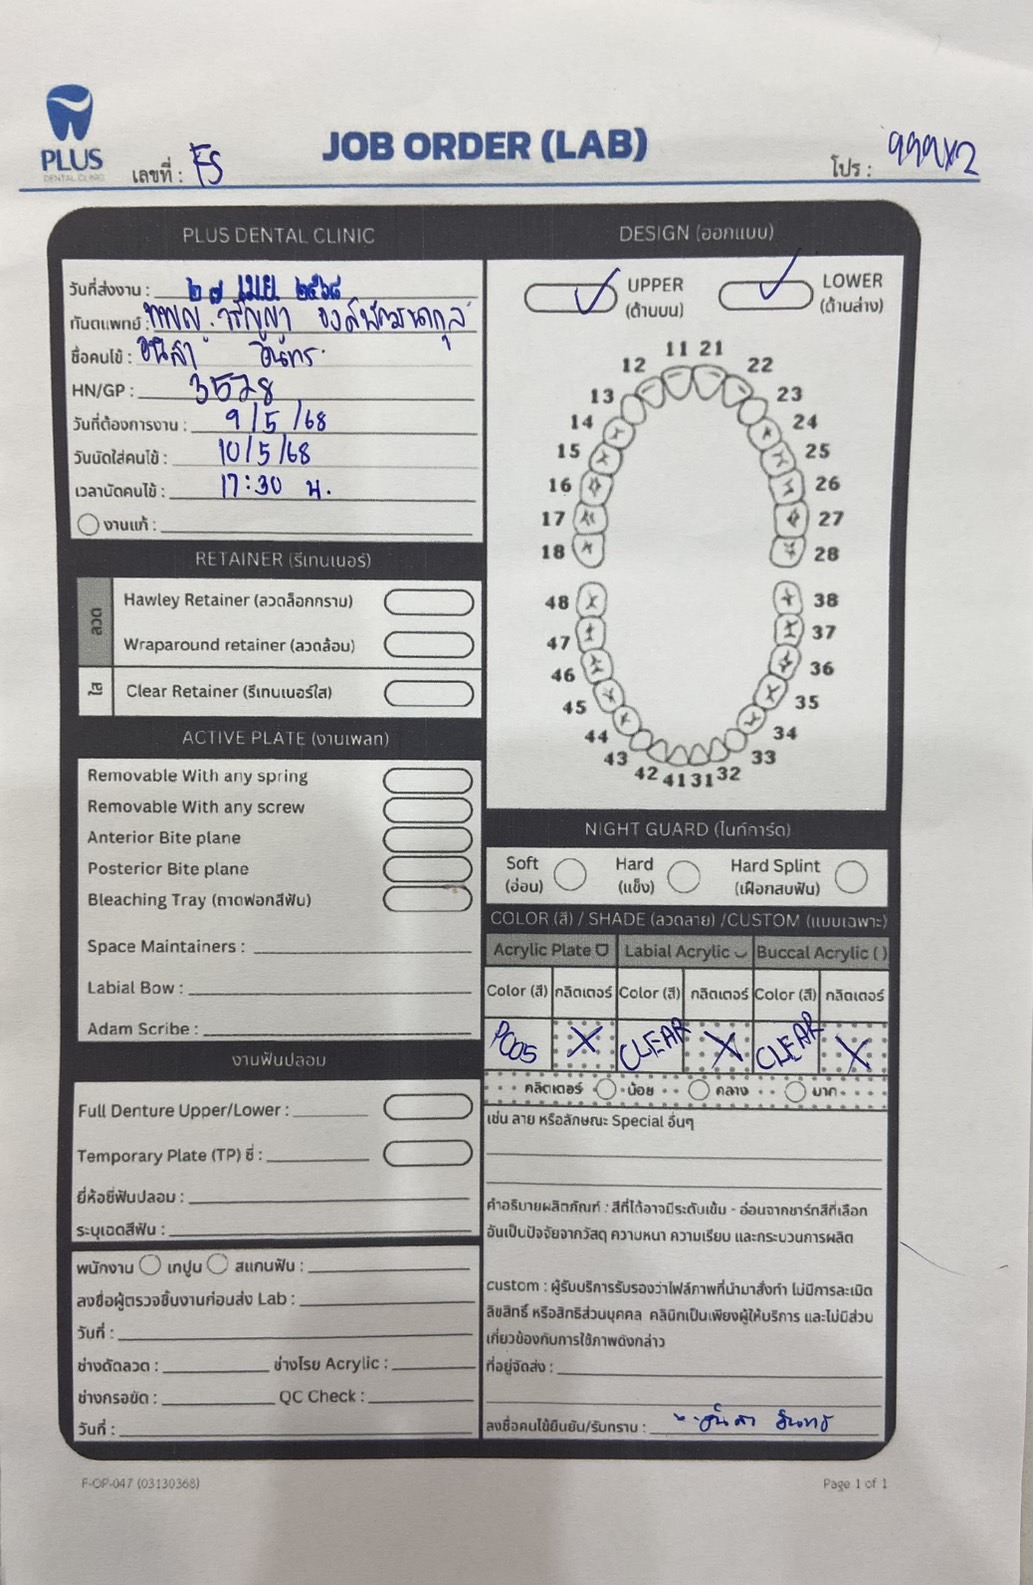 PLUS
DENTAL CLINIC
เลขที่ : FS
JOB ORDER (LAB)
โปร : 999x2
PLUS DENTAL CLINIC
วันที่ส่งงาน : ๒๗ เม.ย. ๒๕๖๘
ทันตแพทย์ : ทพญ.
ชื่อคนไข้ :
HN/GP : 3528
วันที่ต้องการงาน : 9/5/68
วันนัดใส่คนไข้ : 10/5/68
เวลานัดคนไข้ : 17:30 น.
งานแก้ :
RETAINER (รีเทนเนอร์)
ลวด
Hawley Retainer (ลวดล็อกกราม)
Wraparound retainer (ลวดล้อม)
ใส
Clear Retainer (รีเทนเนอร์ใส)
ACTIVE PLATE (งานเพลท)
Removable With any spring
Removable With any screw
Anterior Bite plane
Posterior Bite plane
Bleaching Tray (ถาดฟอกสีฟัน)
Space Maintainers :
Labial Bow :
Adam Scribe :
งานฟันปลอม
Full Denture Upper/Lower :
Temporary Plate (TP) ซี่ :
ยี่ห้อซี่ฟันปลอม :
ระบุเฉดสีฟัน :
พนักงาน เทปูน สแกนฟัน :
ลงชื่อผู้ตรวจชิ้นงานก่อนส่ง Lab :
วันที่ :
ช่างดัดลวด : ช่างโรย Acrylic :
ช่างกรอขัด : QC Check :
วันที่ :
DESIGN (ออกแบบ)
UPPER
(ด้านบน)
LOWER
(ด้านล่าง)
11 21
12 22
13 23
14 24
15 25
16 26
17 27
18 28
48 38
47 37
46 36
45 35
44 34
43 33
42 41 31 32
NIGHT GUARD (ไนท์การ์ด)
Soft
(อ่อน)
Hard
(แข็ง)
Hard Splint
(เฝือกสบฟัน)
COLOR (สี) / SHADE (ลวดลาย) /CUSTOM (แบบเฉพาะ)
Acrylic Plate Labial Acrylic Buccal Acrylic ( )
Color (สี) กลิตเตอร์ Color (สี) กลิตเตอร์ Color (สี) กลิตเตอร์
PC05 X CLEAR X CLEAR X
กลิตเตอร์ น้อย กลาง มาก
เช่น ลาย หรือลักษณะ Special อื่นๆ
คำอธิบายผลิตภัณฑ์ : สีที่ได้อาจมีระดับเข้ม - อ่อนจากชาร์ทสีที่เลือก
อันเป็นปัจจัยจากวัสดุ ความหนา ความเรียบ และกระบวนการผลิต
custom : ผู้รับบริการรับรองว่าไฟล์ภาพที่นำมาสั่งทำ ไม่มีการละเมิด
ลิขสิทธิ์ หรือสิทธิส่วนบุคคล คลินิกเป็นเพียงผู้ให้บริการ และไม่มีส่วน
เกี่ยวข้องกับการใช้ภาพดังกล่าว
ที่อยู่จัดส่ง :
ลงชื่อคนไข้ยืนยัน/รับทราบ :
F-OP-047 (03130368)
Page 1 of 1